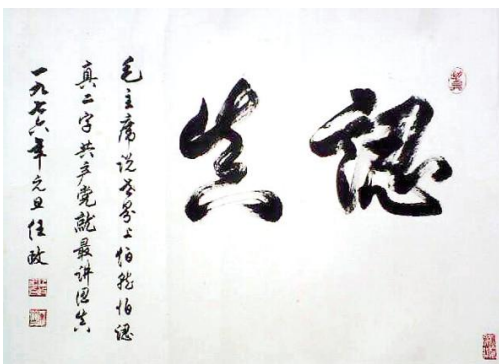 認真
毛主席说世界上怕就怕認
真二字共产党就最讲認真
一九七六年元旦任政